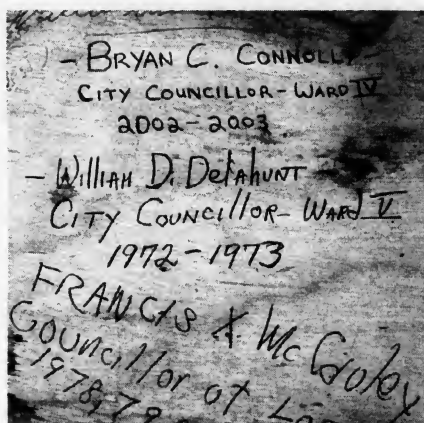 - BRYAN C. CONNOLLY -
CITY COUNCILLOR - WARD IV
2002-2003
- William D. Delahunt
City Councillor - Ward V
1972-1973
FRANCIS X McCauley
Councillor at
1978,79